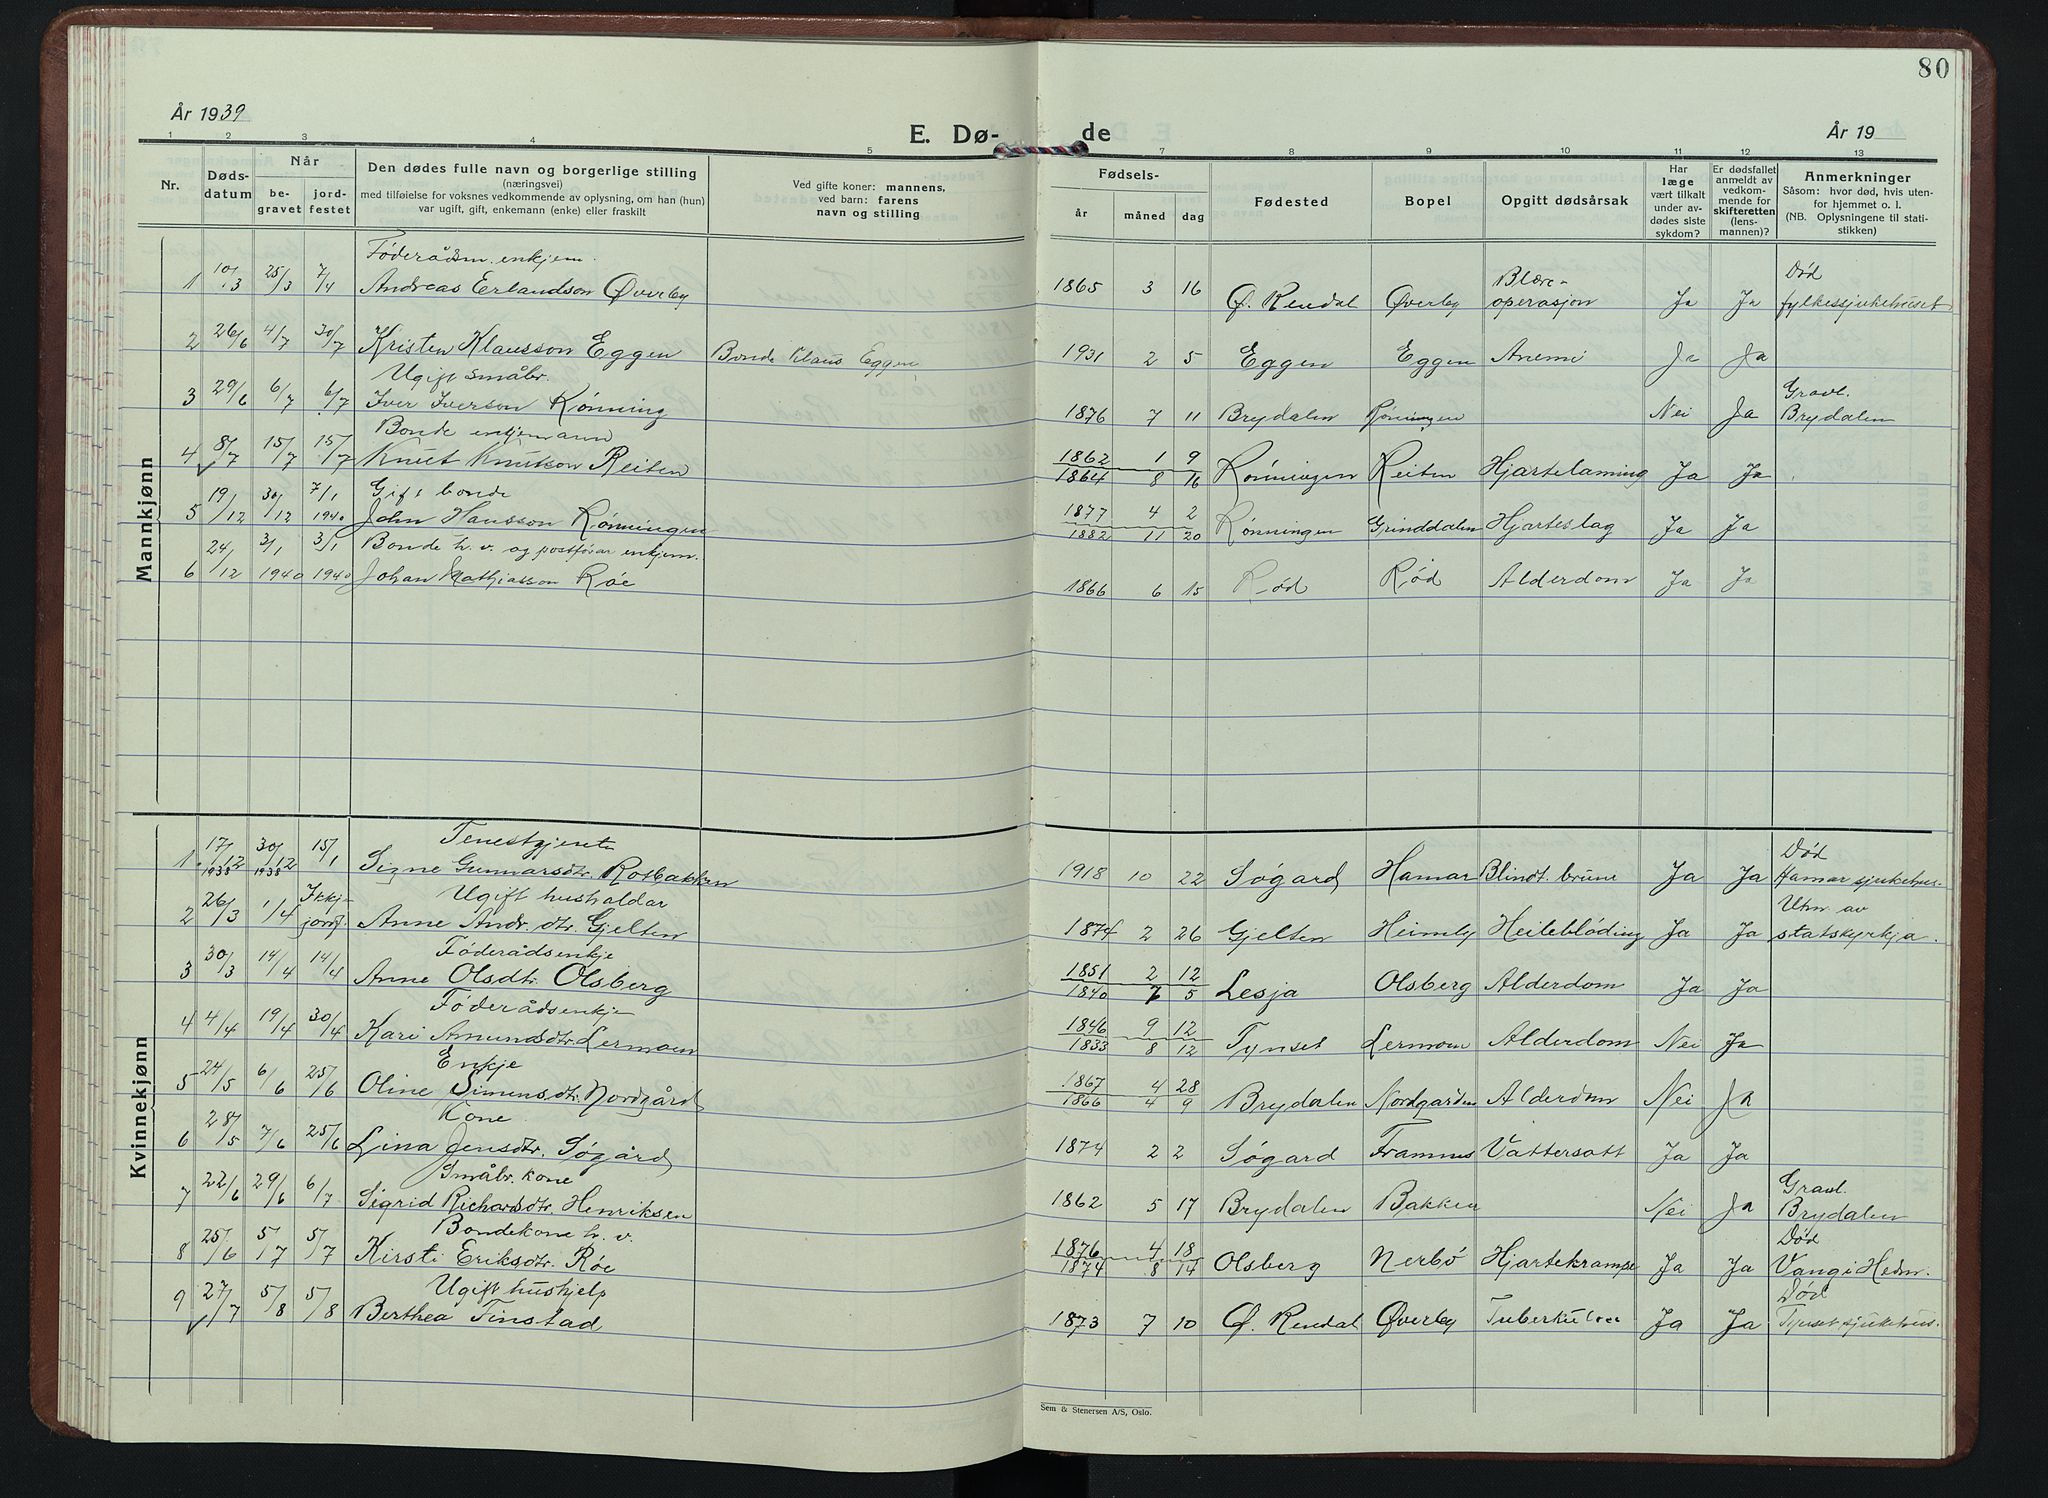 80
År 1939
E. Dø-
de
År 19
1 2 3 4 5 7 8 9 10 11 12 13
Nr.
Døds-
datum
Når
be-
gravet
jord-
festet
Den dødes fulle navn og borgerlige stilling
(næringsvei)
med tilføielse for voksnes vedkommende av oplysning, om han (hun)
var ugift, gift, enkemann (enke) eller fraskilt
Ved gifte koner: mannens,
ved barn: farens
navn og stilling
Fødsels-
år måned dag
Fødested
Bopel
Opgitt dødsårsak
Har
læge
vært tilkalt
under av-
dødes siste
sykdom?
Er dødsfallet
anmeldt av
vedkom-
mende for
skifteretten
(lens-
mannen)?
Anmerkninger
Såsom: hvor død, hvis uten-
for hjemmet o. l.
(NB. Oplysningene til stati-
stikken)
Mannkjønn
Føderådsm. enkjem.
Blære-
Død
1 10/3 25/3 7/4 Andreas Erlandson Øverby 1865 3 16 Ø. Rendal Øverby operasjon Ja Ja fylkessjukehuset
2 26/6 4/7 30/7 Kristen Klausson Eggen Bonde Klaus Eggen 1931 2 5 Eggen Eggen Anemi Ja Ja
Ugift småbr.
Gravl.
3 29/6 6/7 6/7 Iver Iverson Rønning 1876 7 11 Brydalen Rønningen Nei Ja Brydalen
Bonde enkjemann
4 8/7 15/7 15/7 Knut Knutson Reiten 1862 1 9 Rønningen Reiten Hjartelaming Ja Ja
1864 8 16
Gift bonde
5 19/12 30/12 7/1 1940 John Hansson Rønningen 1877 4 2 Rønningen Grinddalen Hjarteslag Ja Ja
1882 11 20
Bonde h. v. og postfører enkjem.
6 24/12 3/1 1940 3/1 1940 Johan Mathiasson Røe 1866 6 15 Rød Rød Alderdom Ja Ja
Kvinnekjønn
Tenestgjente
Død
1 17/12 1938 30/12 1938 15/1 Signe Gunnarsdtr. Rosbakken 1918 10 22 Søgard Hamar Blindt. brune Ja Ja Hamar sjukehus.
Ugift husholdar
Utm. av
2 26/3 1/4 Ikkj jordf. Anne Andr. dtr. Gjelten 1874 2 26 Gjelten Heimly Heilebløding Ja Ja statskyrkja.
Føderådsenkje
3 30/3 14/4 14/4 Anne Olsdtr. Olsberg 1851 2 12 Lesja Olsberg Alderdom Ja Ja
1840 7 5
Føderådsenkje
4 4/4 19/4 30/4 Kari Amundsdtr. Lermoen 1846 9 12 Tynset Lermoen Alderdom Nei Ja
1833 8 12
Enkje
5 24/5 6/6 25/6 Oline Simensdtr. Nordgård 1867 4 28 Brydalen Nordgarden Alderdom Nei Ja
1866 4 9
Kone
6 28/5 7/6 25/6 Lina Jensdtr. Søgård 1874 2 2 Søgard Framnes Vattersott Ja Ja
Småbr. kone
Gravl.
7 22/6 29/6 6/7 Sigrid Richardsdtr. Henriksen 1862 5 17 Brydalen Bakken Nei Ja Brydalen
Bondekone h. v.
Død
8 25/6 5/7 5/7 Kirsti Eriksdtr. Røe 1876 4 18 Olsberg Nerbø Hjartekrampe Ja Ja Vang i Hedm.
1874 8 14
Ugift hushjelp
Død
9 27/7 5/8 5/8 Berthea Finstad 1873 7 10 Ø. Rendal Øverby Tuberkulose Ja Ja Tynset sjukehus.
Sem & Stenersen A/S, Oslo.